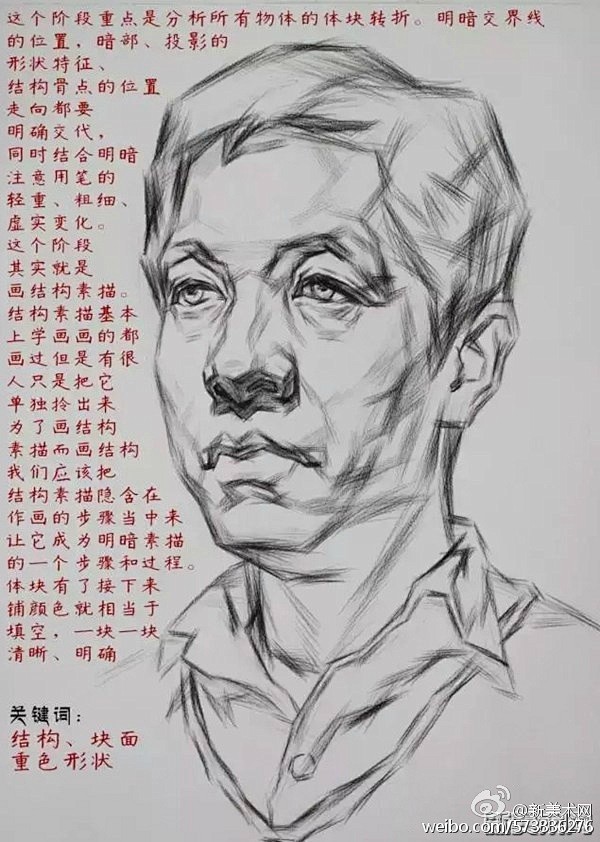 这个阶段重点是分析所有物体的体块转折。明暗交界线
的位置，暗部、投影的
形状特征、
结构骨点的位置
走向都要
明确交代，
同时结合明暗
注意用笔的
轻重、粗细、
虚实变化。
这个阶段
其实就是
画结构素描。
结构素描基本
上学画画的都
画过但是有很
人只是把它
单独拎出来
为了画结构
素描而画结构
我们应该把
结构素描隐含在
作画的步骤当中来
让它成为明暗素描
的一个步骤和过程。
体块有了接下来
铺颜色就相当于
填空，一块一块
清晰、明确
关键词：
结构、块面
重色形状
@新美术网
weibo.com/573836276